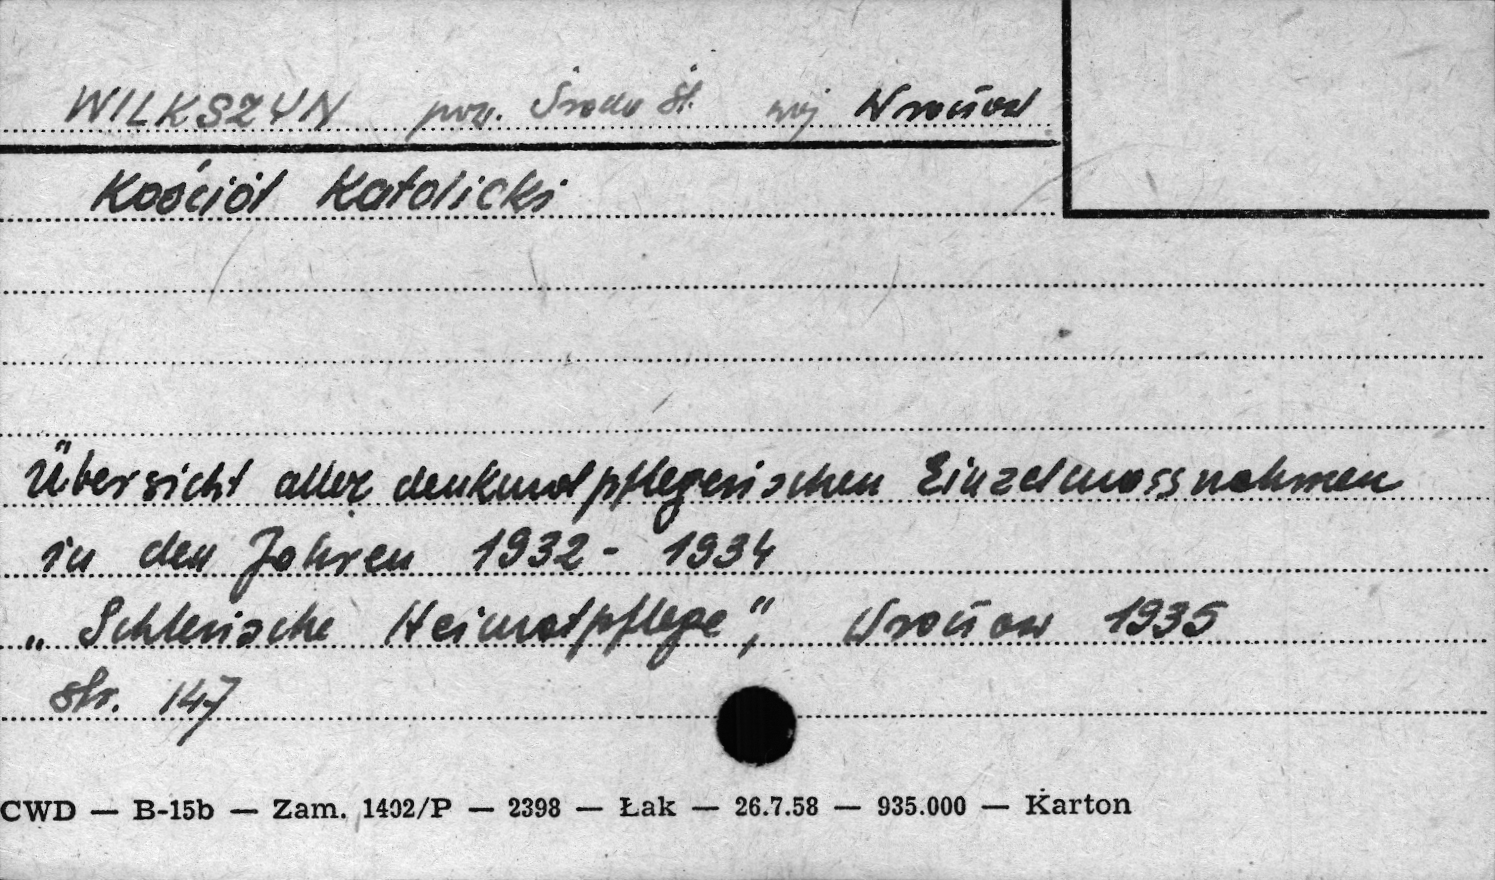 WILKSZYN pow. Środa Śl. woj Wrocław
Kościół Katolicki
Übersicht aller denkmalpflegerischen Einzelmassnahmen
in den Jahren 1932 - 1934
„Schlesische Heimatpflege", Wrocław 1935
str. 147
CWD — B-15b — Zam. 1402/P — 2398 — Łak — 26.7.58 — 935.000 — Karton